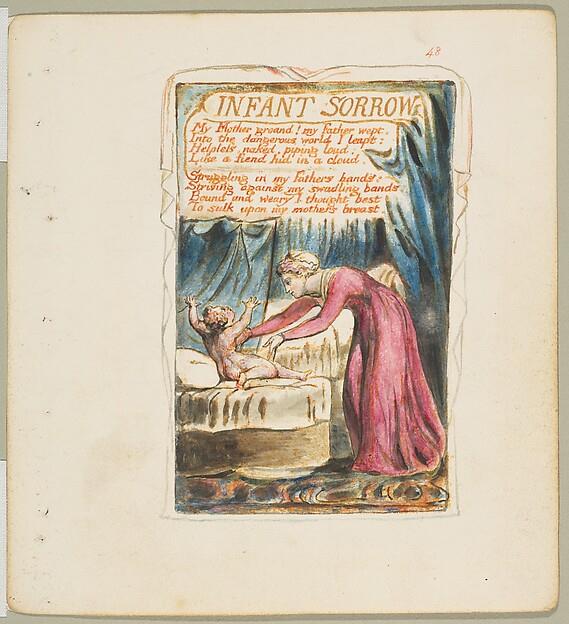 48
INFANT SORROW
My Mother groand! my father wept.
Into the dangerous world I leapt:
Helpless naked, piping loud:
Like a fiend hid in a cloud.
Struggling in my fathers hands:
Striving against my swadling bands
Bound and weary I thought best
To sulk upon my mothers breast.